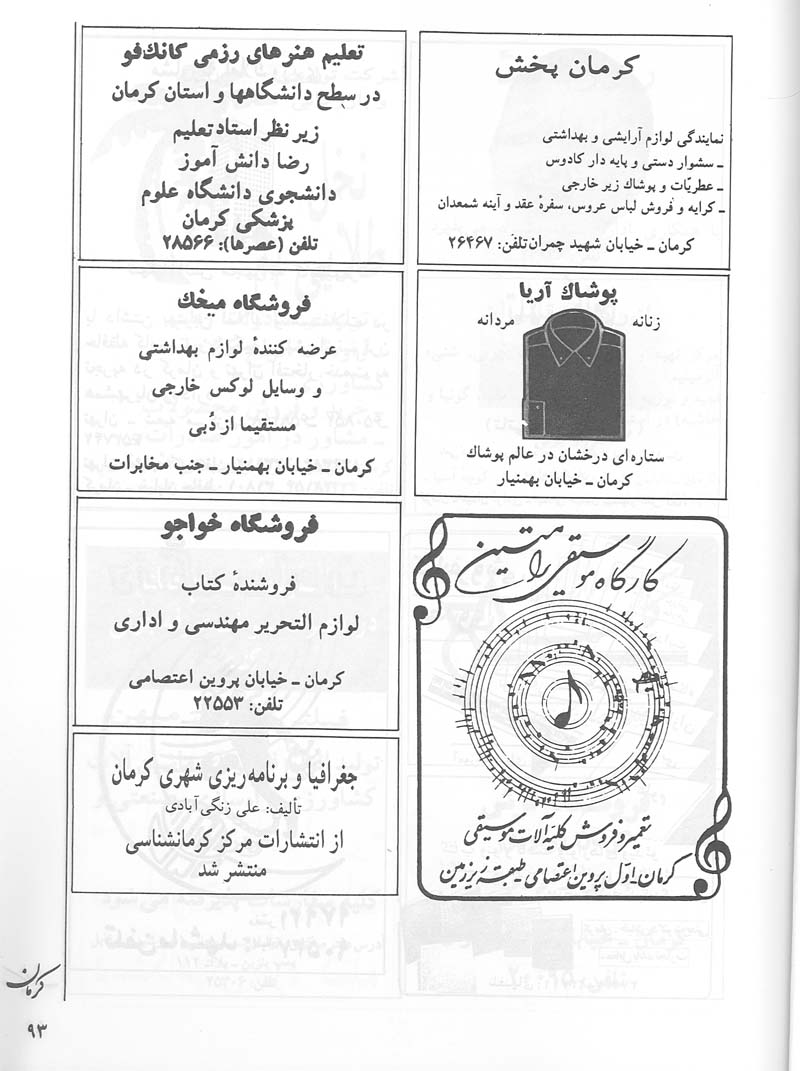 کرمان پخش
نمایندگی لوازم آرایشی و بهداشتی
ـ سشوار دستی و پایه دار کادوس
ـ عطریّات و پوشاك زیر خارجی
ـ کرایه و فروش لباس عروس، سفرهٔ عقد و آینه شمعدان
کرمان ـ خیابان شهید چمران تلفن: ۲۶۴۶۷
تعلیم هنرهای رزمی کانك‌فو
در سطح دانشگاهها و استان کرمان
زیر نظر استاد تعلیم
رضا دانش آموز
دانشجوی دانشگاه علوم
پزشکی کرمان
تلفن (عصرها): ۲۸۵۶۶
پوشاك آریا
زنانه مردانه
ستاره‌ای درخشان در عالم پوشاك
کرمان ـ خیابان بهمنیار
فروشگاه میخك
عرضه کنندهٔ لوازم بهداشتی
و وسایل لوکس خارجی
مستقیما از دُبی
کرمان ـ خیابان بهمنیار ـ جنب مخابرات
کارگاه موسیقی رامتین
تعمیر و فروش کلیه آلات موسیقی
کرمان. اوّل پروین اعتصامی طبقه زیرزمین
فروشگاه خواجو
فروشندهٔ کتاب
لوازم التحریر مهندسی و اداری
کرمان ـ خیابان پروین اعتصامی
تلفن: ۲۲۵۵۳
جغرافیا و برنامه‌ریزی شهری کرمان
تألیف: علی زنگی‌آبادی
از انتشارات مرکز کرمانشناسی
منتشر شد
کرمان
۹۳